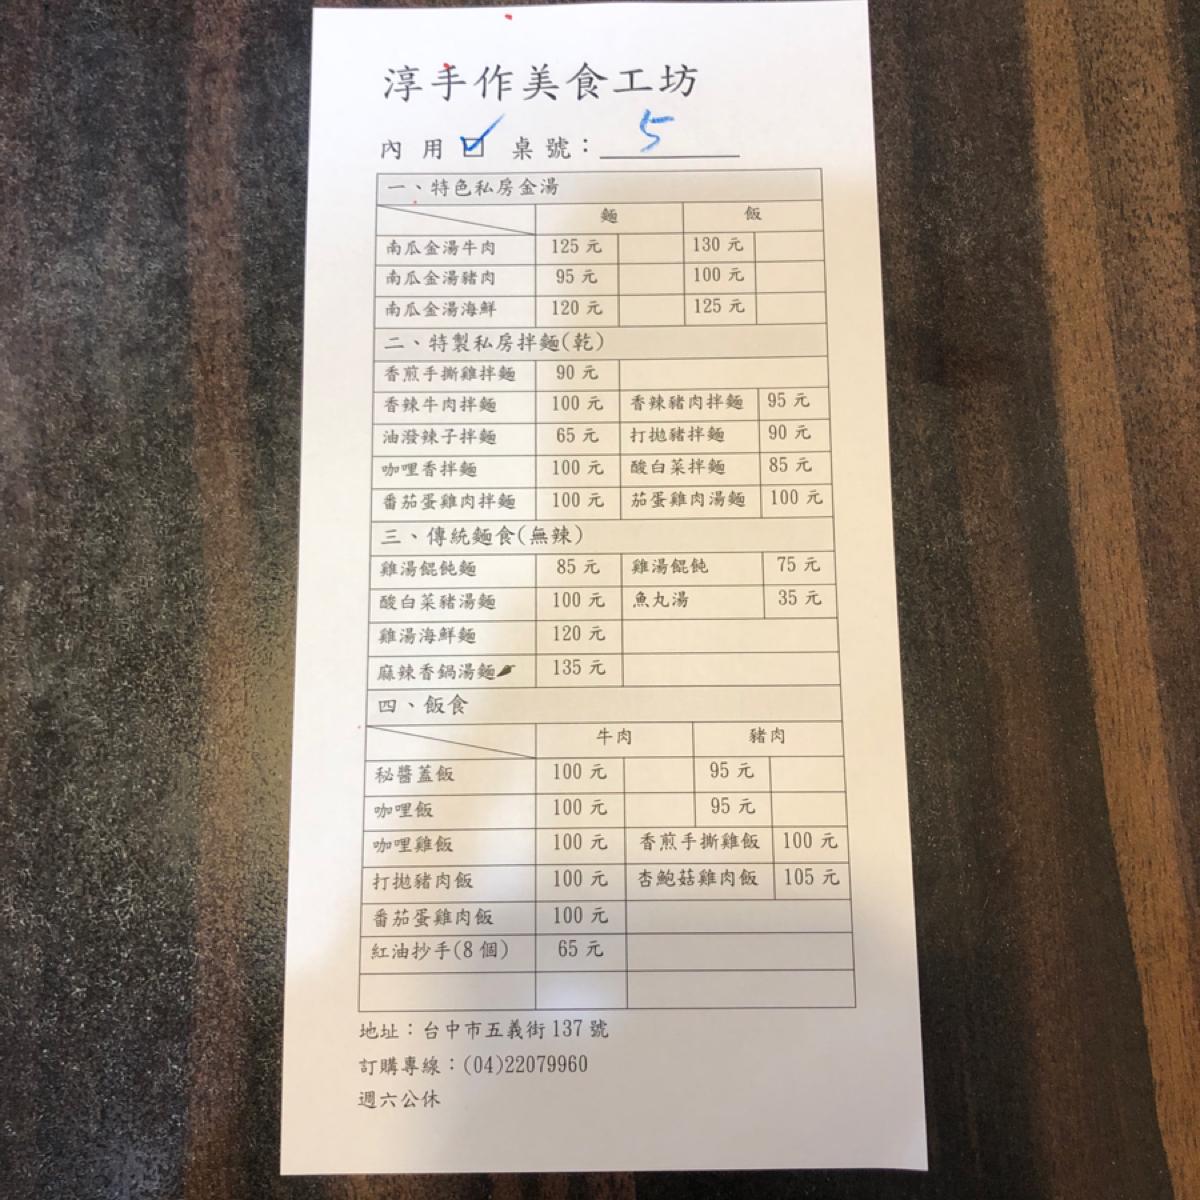 淳手作美食工坊
內用 ☑ 桌號：5
一、特色私房金湯
麵 飯
南瓜金湯牛肉 125 元 130 元
南瓜金湯豬肉 95 元 100 元
南瓜金湯海鮮 120 元 125 元
二、特製私房拌麵(乾)
香煎手撕雞拌麵 90 元
香辣牛肉拌麵 100 元 香辣豬肉拌麵 95 元
油潑辣子拌麵 65 元 打拋豬拌麵 90 元
咖哩香拌麵 100 元 酸白菜拌麵 85 元
番茄蛋雞肉拌麵 100 元 茄蛋雞肉湯麵 100 元
三、傳統麵食(無辣)
雞湯餛飩麵 85 元 雞湯餛飩 75 元
酸白菜豬湯麵 100 元 魚丸湯 35 元
雞湯海鮮麵 120 元
麻辣香鍋湯麵 135 元
四、飯食
牛肉 豬肉
秘醬蓋飯 100 元 95 元
咖哩飯 100 元 95 元
咖哩雞飯 100 元 香煎手撕雞飯 100 元
打拋豬肉飯 100 元 杏鮑菇雞肉飯 105 元
番茄蛋雞肉飯 100 元
紅油抄手(8 個) 65 元
地址：台中市五義街 137 號
訂購專線：(04)22079960
週六公休